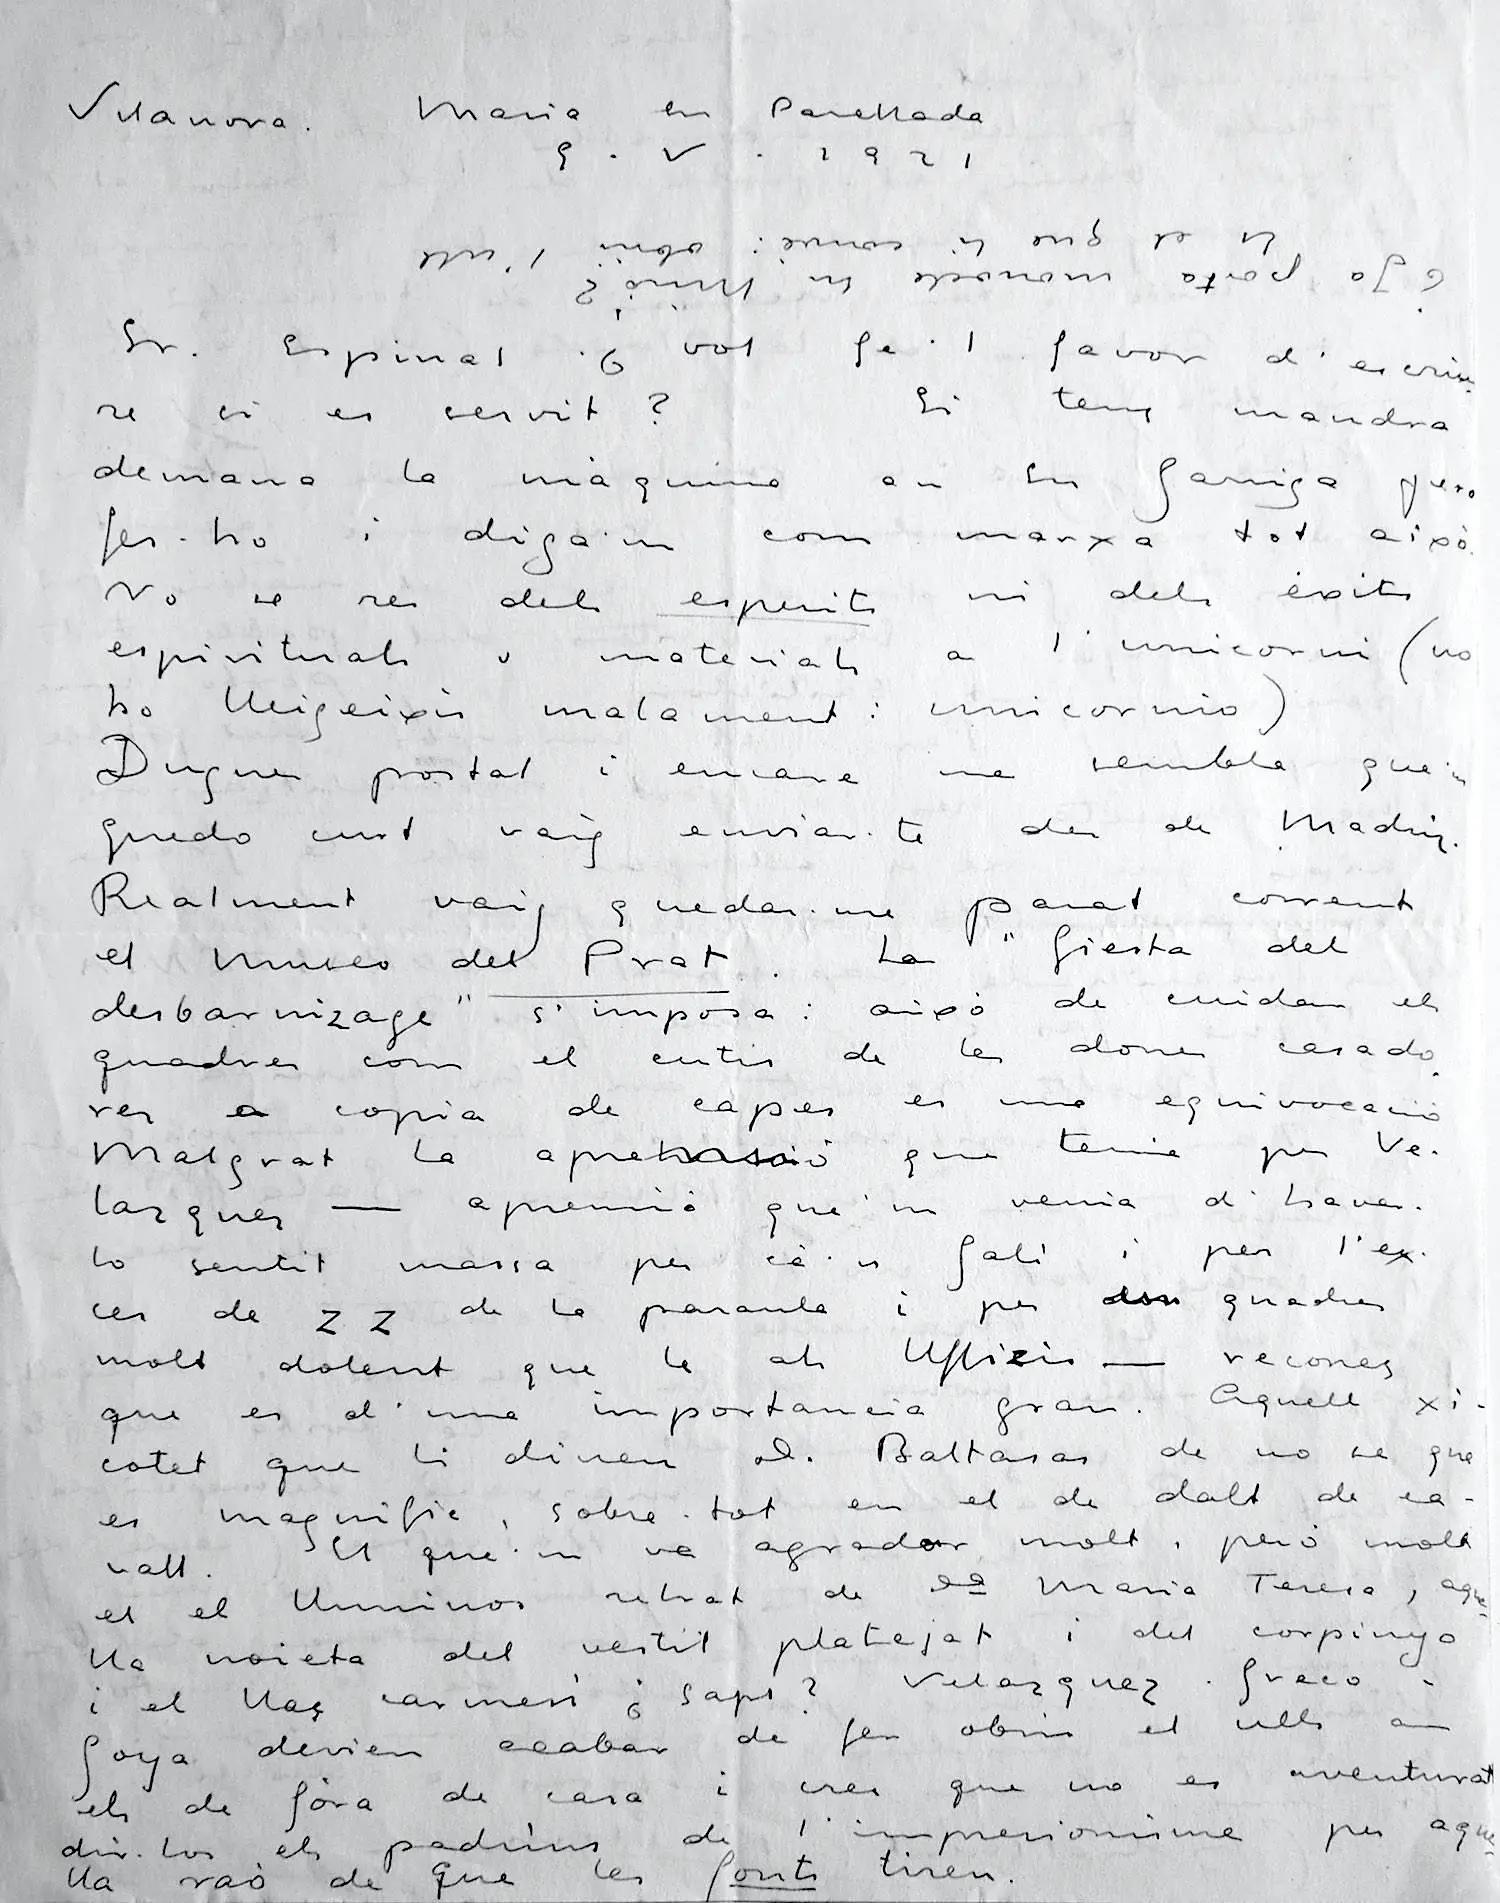 Vilanova. Maria en Parellada
9 . V . 1921
¿ Ja porta monocle en Miró?
Es el que li convé: obrir l'ull
Sr. Espinal ¿ vol fe'l favor d'escriu-
re si es servit? Si tens mandra
demana la màquina an en Garriga pero
fes-ho i diga'm com marxa tot això.
No se res dels esperits ni dels èxits
espirituals o materials a l'unicorni (no
ho lleigeixis malament: unicornio)
Dugues postal i encare me sembla que'm
quedo curt vaig enviar-te des de Madriz.
Realment vaig quedar-me parat corrent
el Museo del Prat. La "fiesta del
desbarnizage" s'imposa: això de cuidar els
quadres com el cutis de les dones casado-
res a copia de capes es una equivocació
Malgrat la aprensió que tenia per Ve-
lazquez — aprensió que'm venia d'haver-
lo sentit massa per cà'n Galí i per l'ex-
ces de ZZ de la paraula i per dos quadres
molt dolent que te als Uffizis — reconeg
que es d'una importancia gran. Aquell xi-
cotet que li diuen D. Baltasar de no se que
es magnific, sobre-tot en el de dalt de ca-
vall. El que'm va agradar molt, però molt
es el lluminos retrat de Dª Maria Teresa, aque-
lla noieta del vestit platejat i del corpinyo
i el llaç carmesí ¿ saps? Velazquez - Greco -
Goya devien acabar de fer obrir el ulls an
els de fòra de casa i crec que no es aventurat
dir-los els padrins de l'impresionisme per aque-
lla raó de que les fonts tiren.